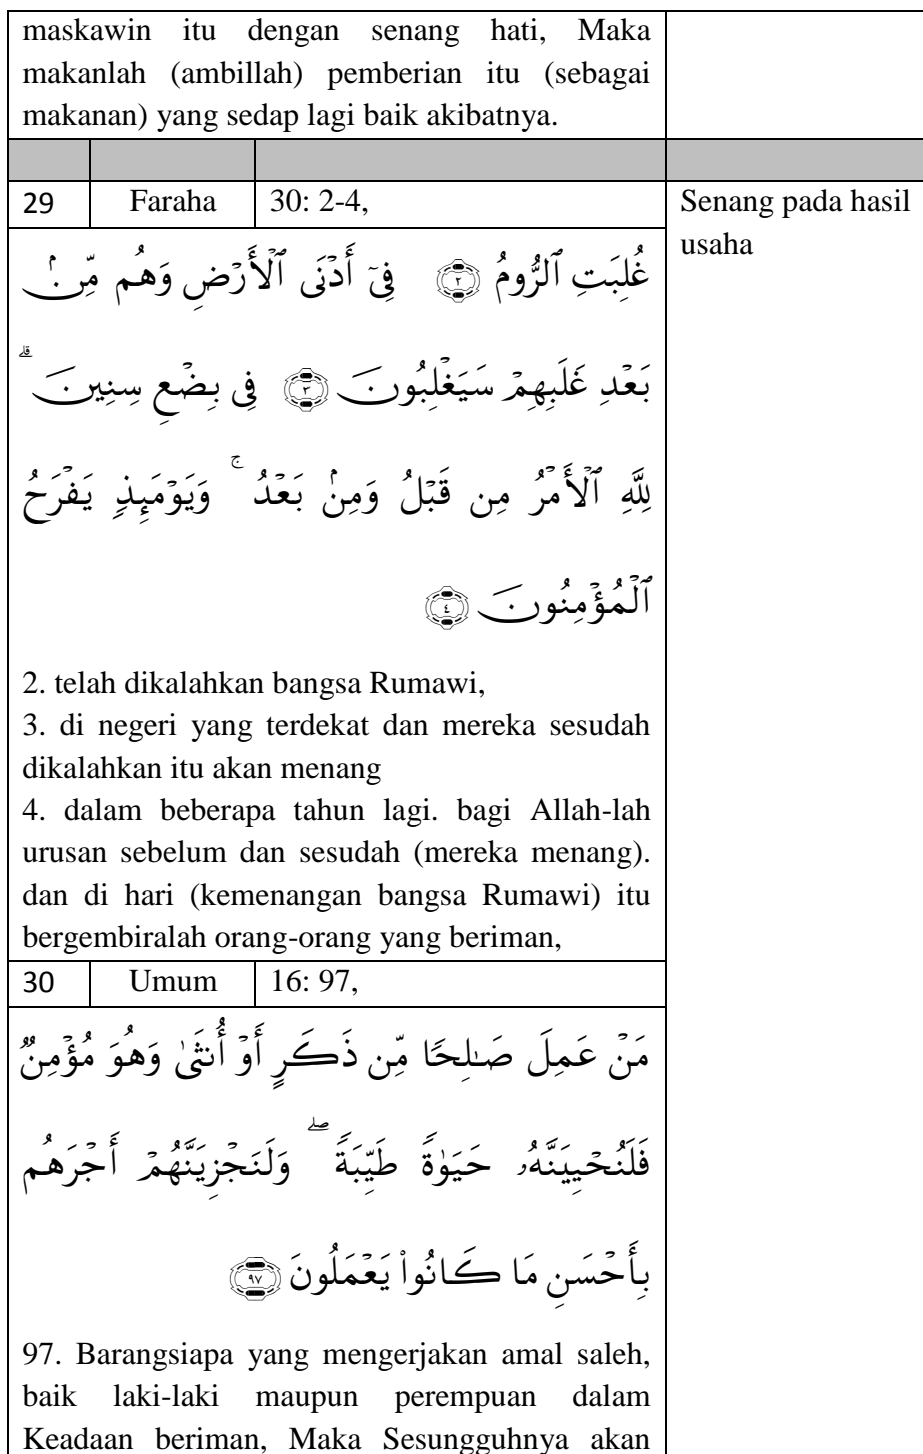 maskawin itu dengan senang hati, Maka
makanlah (ambillah) pemberian itu (sebagai
makanan) yang sedap lagi baik akibatnya.
29 Faraha 30: 2-4, Senang pada hasil
usaha
غُلِبَتِ ٱلرُّومُ ۝٢ فِىٓ أَدْنَى ٱلْأَرْضِ وَهُم مِّنۢ
بَعْدِ غَلَبِهِمْ سَيَغْلِبُونَ ۝٣ فِى بِضْعِ سِنِينَ ۗ
لِلَّهِ ٱلْأَمْرُ مِن قَبْلُ وَمِنۢ بَعْدُ ۚ وَيَوْمَئِذٍ يَفْرَحُ
ٱلْمُؤْمِنُونَ ۝٤
2. telah dikalahkan bangsa Rumawi,
3. di negeri yang terdekat dan mereka sesudah
dikalahkan itu akan menang
4. dalam beberapa tahun lagi. bagi Allah-lah
urusan sebelum dan sesudah (mereka menang).
dan di hari (kemenangan bangsa Rumawi) itu
bergembiralah orang-orang yang beriman,
30 Umum 16: 97,
مَنْ عَمِلَ صَـٰلِحًا مِّن ذَكَرٍ أَوْ أُنثَىٰ وَهُوَ مُؤْمِنٌ
فَلَنُحْيِيَنَّهُۥ حَيَوٰةً طَيِّبَةً ۖ وَلَنَجْزِيَنَّهُمْ أَجْرَهُم
بِأَحْسَنِ مَا كَانُوا۟ يَعْمَلُونَ ۝٩٧
97. Barangsiapa yang mengerjakan amal saleh,
baik laki-laki maupun perempuan dalam
Keadaan beriman, Maka Sesungguhnya akan